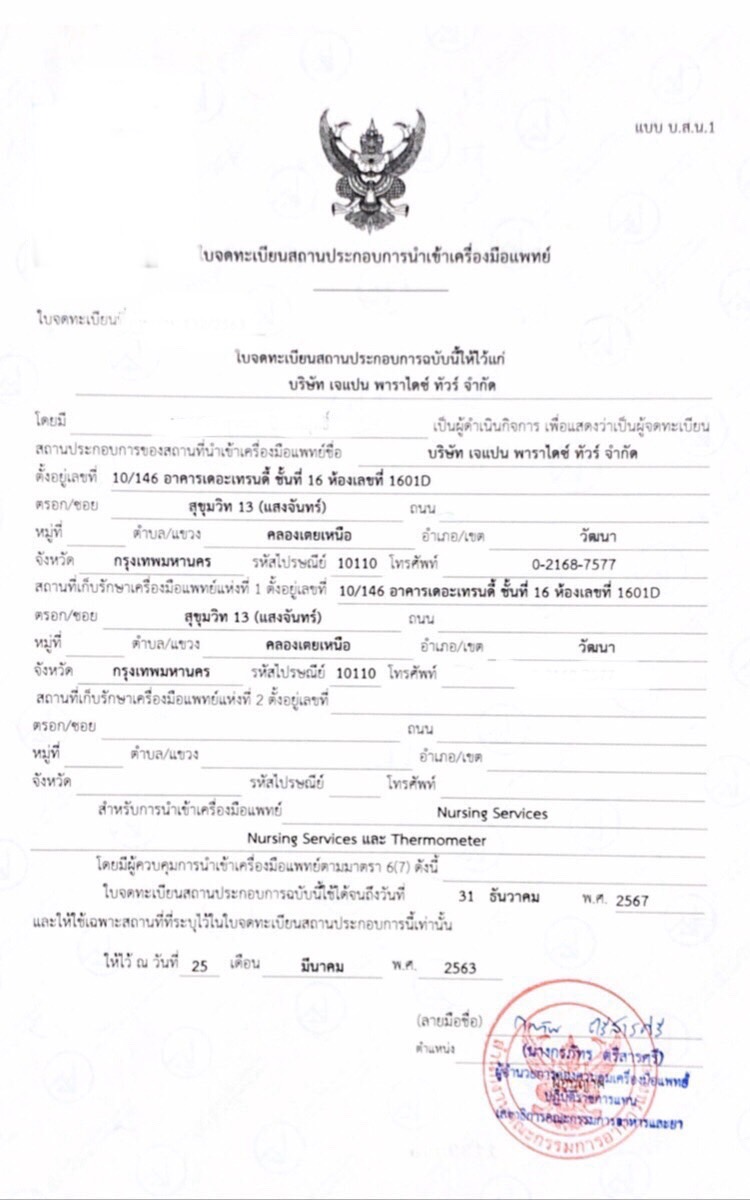 แบบ บ.ส.น.1
ใบจดทะเบียนสถานประกอบการนำเข้าเครื่องมือแพทย์
ใบจดทะเบียนที่
ใบจดทะเบียนสถานประกอบการฉบับนี้ให้ไว้แก่
บริษัท เจแปน พาราไดซ์ ทัวร์ จำกัด
โดยมี เป็นผู้ดำเนินกิจการ เพื่อแสดงว่าเป็นผู้จดทะเบียน
สถานประกอบการของสถานที่นำเข้าเครื่องมือแพทย์ชื่อ บริษัท เจแปน พาราไดซ์ ทัวร์ จำกัด
ตั้งอยู่เลขที่ 10/146 อาคารเดอะเทรนดี้ ชั้นที่ 16 ห้องเลขที่ 1601D
ตรอก/ซอย สุขุมวิท 13 (แสงจันทร์) ถนน
หมู่ที่ ตำบล/แขวง คลองเตยเหนือ อำเภอ/เขต วัฒนา
จังหวัด กรุงเทพมหานคร รหัสไปรษณีย์ 10110 โทรศัพท์ 0-2168-7577
สถานที่เก็บรักษาเครื่องมือแพทย์แห่งที่ 1 ตั้งอยู่เลขที่ 10/146 อาคารเดอะเทรนดี้ ชั้นที่ 16 ห้องเลขที่ 1601D
ตรอก/ซอย สุขุมวิท 13 (แสงจันทร์) ถนน
หมู่ที่ ตำบล/แขวง คลองเตยเหนือ อำเภอ/เขต วัฒนา
จังหวัด กรุงเทพมหานคร รหัสไปรษณีย์ 10110 โทรศัพท์
สถานที่เก็บรักษาเครื่องมือแพทย์แห่งที่ 2 ตั้งอยู่เลขที่
ตรอก/ซอย ถนน
หมู่ที่ ตำบล/แขวง อำเภอ/เขต
จังหวัด รหัสไปรษณีย์ โทรศัพท์
สำหรับการนำเข้าเครื่องมือแพทย์ Nursing Services
Nursing Services และ Thermometer
โดยมีผู้ควบคุมการนำเข้าเครื่องมือแพทย์ตามมาตรา 6(7) ดังนี้
ใบจดทะเบียนสถานประกอบการฉบับนี้ใช้ได้จนถึงวันที่ 31 ธันวาคม พ.ศ. 2567
และให้ใช้เฉพาะสถานที่ที่ระบุไว้ในใบจดทะเบียนสถานประกอบการนี้เท่านั้น
ให้ไว้ ณ วันที่ 25 เดือน มีนาคม พ.ศ. 2563
(ลายมือชื่อ)
(นางกรภัทร ตรีสารศรี)
ตำแหน่ง
ผู้อำนวยการกองควบคุมเครื่องมือแพทย์
ปฏิบัติราชการแทน
เลขาธิการคณะกรรมการอาหารและยา